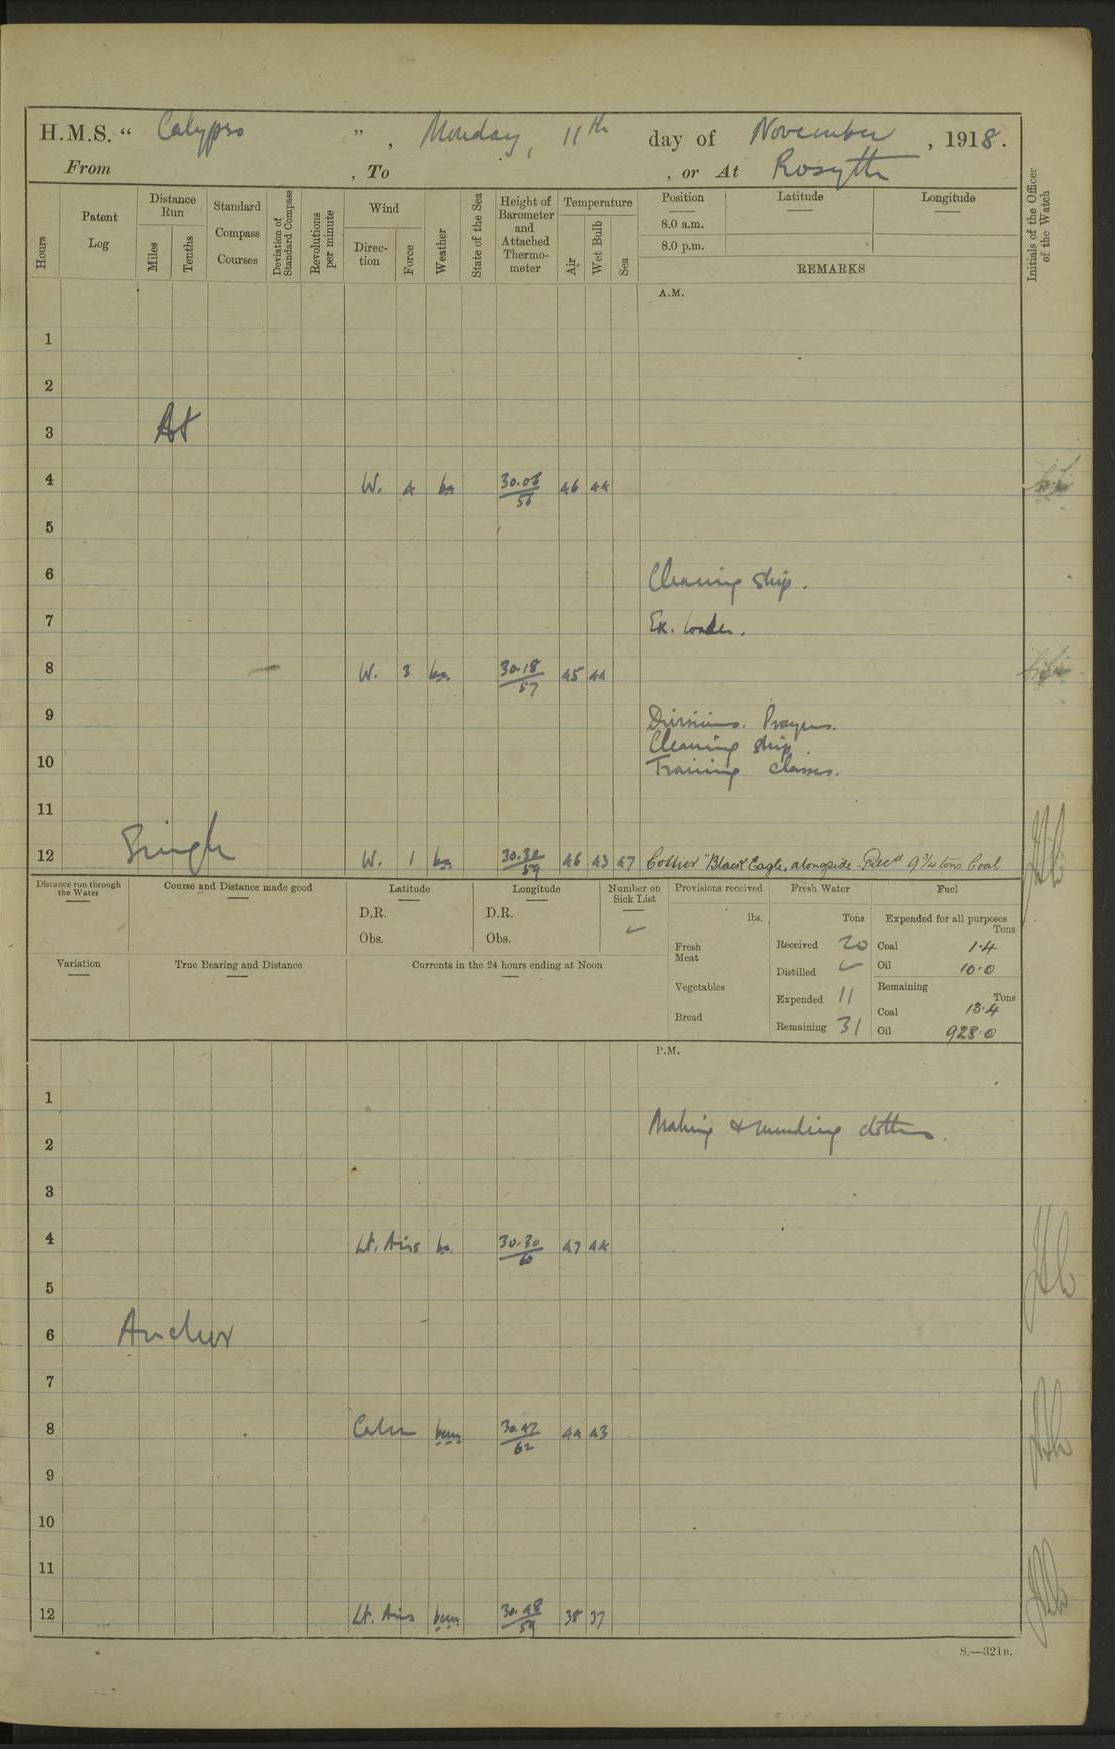 H.M.S. “ Calypso ” , Monday, 11th day of November , 1918.
From , To , or At Rosyth
Hours
Patent Log
Distance Run
Miles
Tenths
Standard Compass Courses
Deviation of Standard Compass
Revolutions per minute
Wind
Direc-tion
Force
Weather
State of the Sea
Height of Barometer and Attached Thermo-meter
Temperature
Air
Wet Bulb
Sea
Position
8.0 a.m.
8.0 p.m.
Latitude
Longitude
REMARKS
Initials of the Officer of the Watch
A.M.
1
2
3 At
4 W. 4 30.06 56 46 44
5
6 Cleaning ship.
7 Ex. loader.
8 W. 3 30.18 57 45 44
9 Divisions. Prayers.
Cleaning ship.
10 Training classes.
11
12 Single W. 1 30.30 59 46 43 47 Collier "Black Eagle, alongside. Recd 9¾ tons Coal
Distance run through the Water
Course and Distance made good
Latitude
D.R.
Obs.
Longitude
D.R.
Obs.
Number on Sick List
Provisions received
lbs.
Fresh Meat
Vegetables
Bread
Fresh Water
Tons
Received 20
Distilled
Expended 11
Remaining 31
Fuel
Expended for all purposes
Tons
Coal 1.4
Oil 10.0
Remaining
Tons
Coal 13.4
Oil 928.0
Variation
True Bearing and Distance
Currents in the 24 hours ending at Noon
P.M.
1
Making & mending clothes.
2
3
4 Lt. Airs 30.30 60 47 44
5
6 Anchor
7
8 Calm 30.42 62 44 43
9
10
11
12 Lt. Airs 30.48 59 38 37
S.—321B.